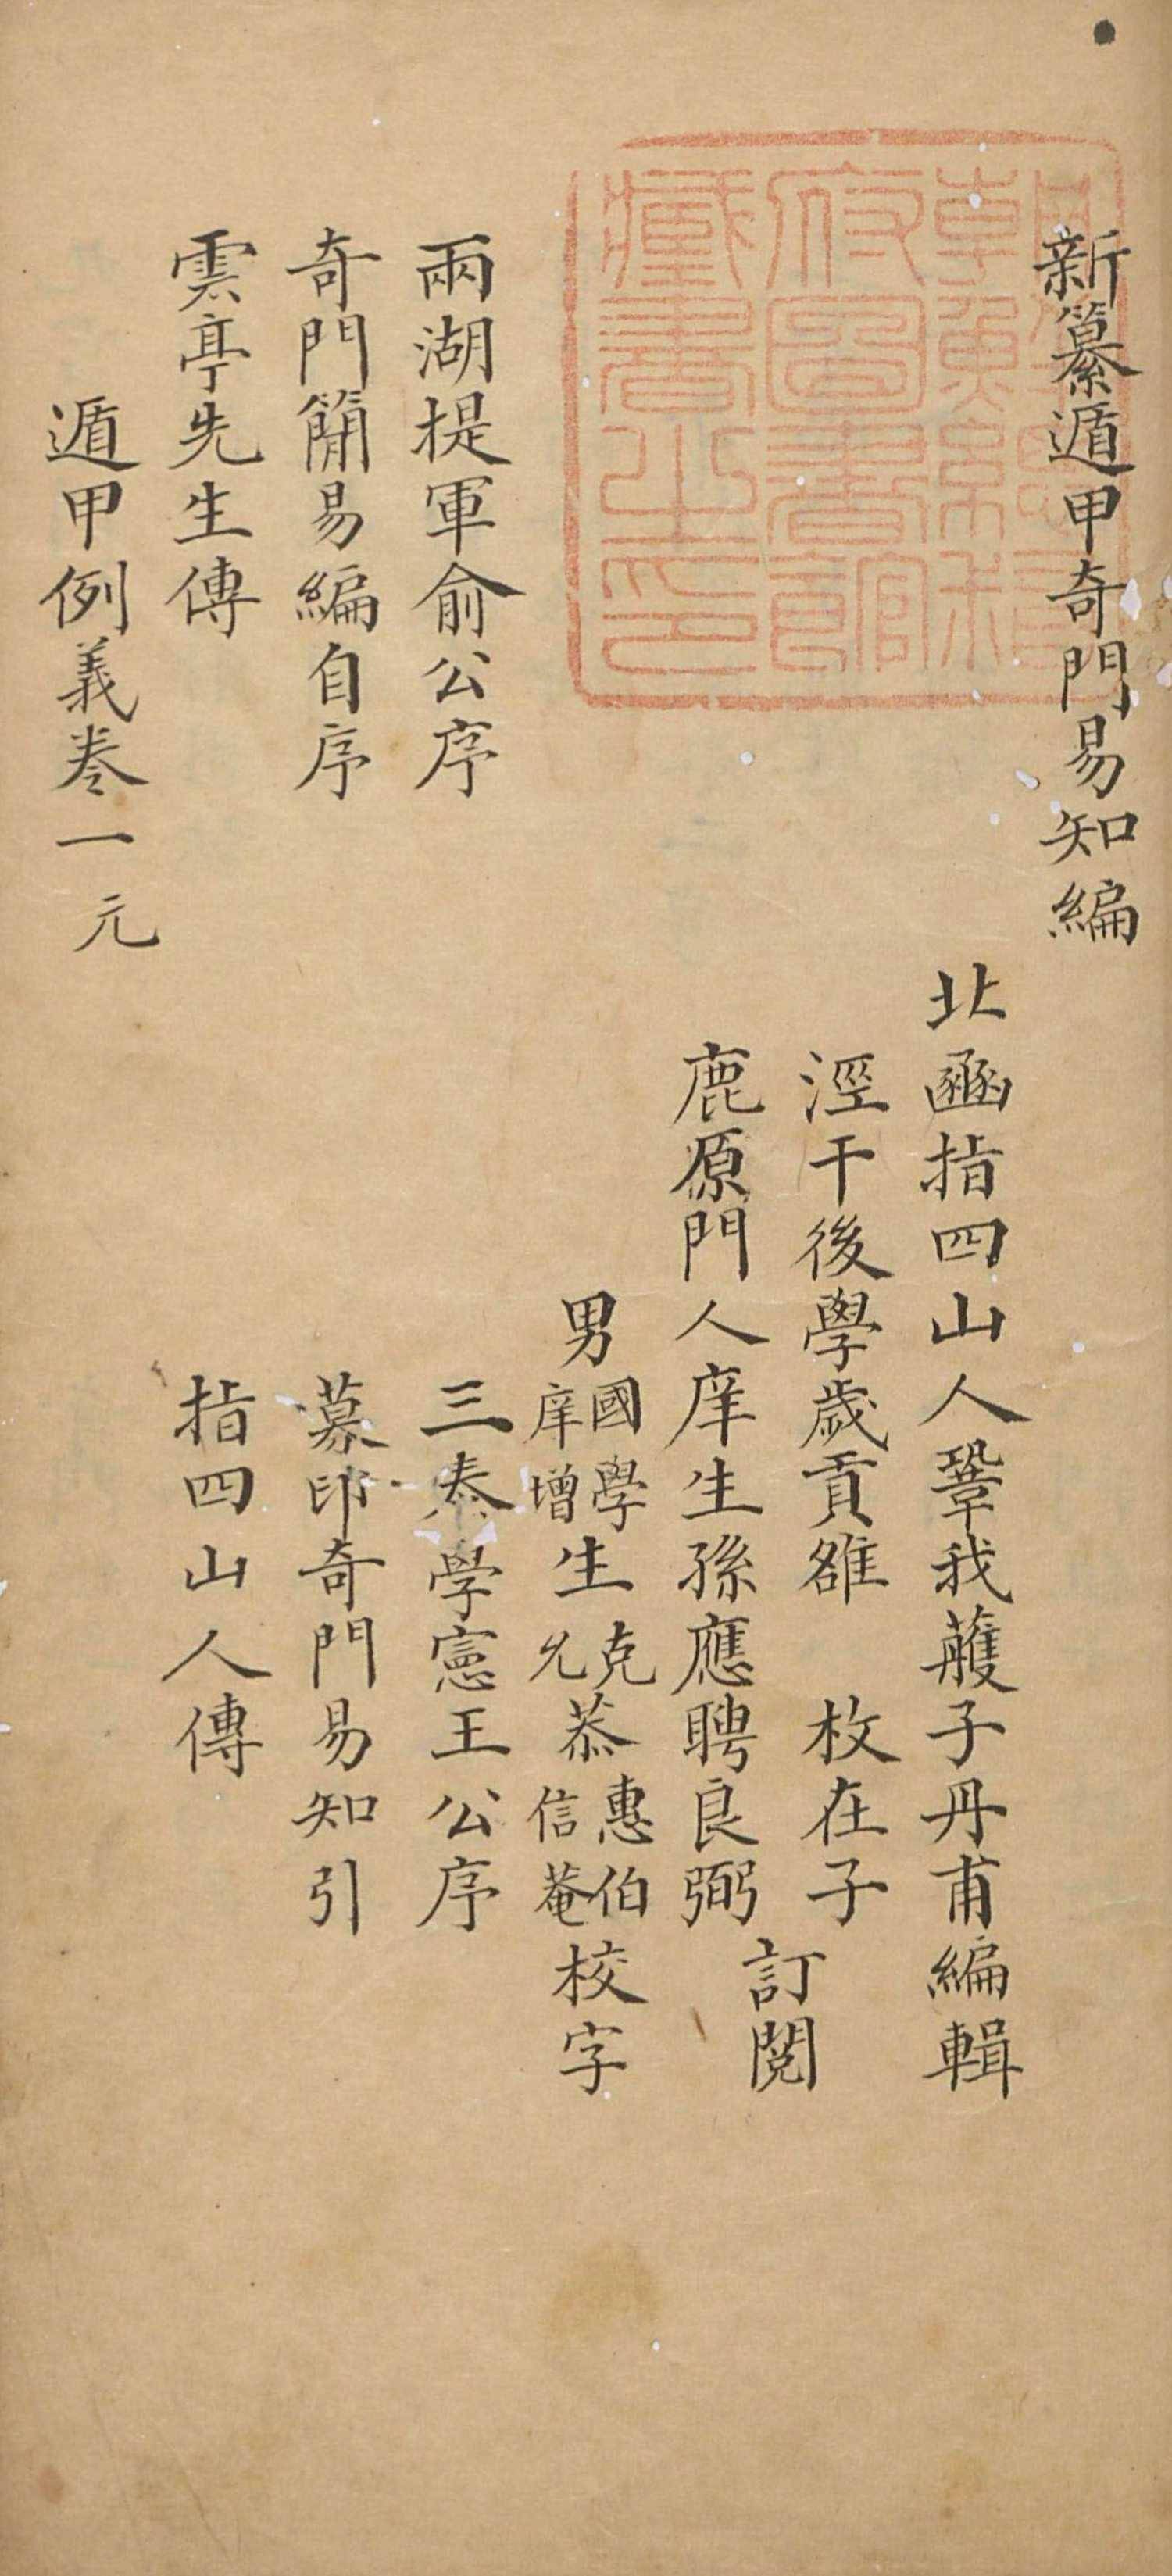 新纂遁甲奇門易知編
北函指四山人鞏我蔓子丹甫編輯
涇干後學歲貢雒 枚在子
鹿原門人庠生孫應聘良弼
訂閱
男國學庠增生克允恭惠伯信菴校字
兩湖提軍俞公序
三秦學憲王公序
奇門簡易編自序
募印奇門易知引
雲亭先生傳
指四山人傳
遁甲例義卷一元
朝鮮總督府圖書館藏書之印